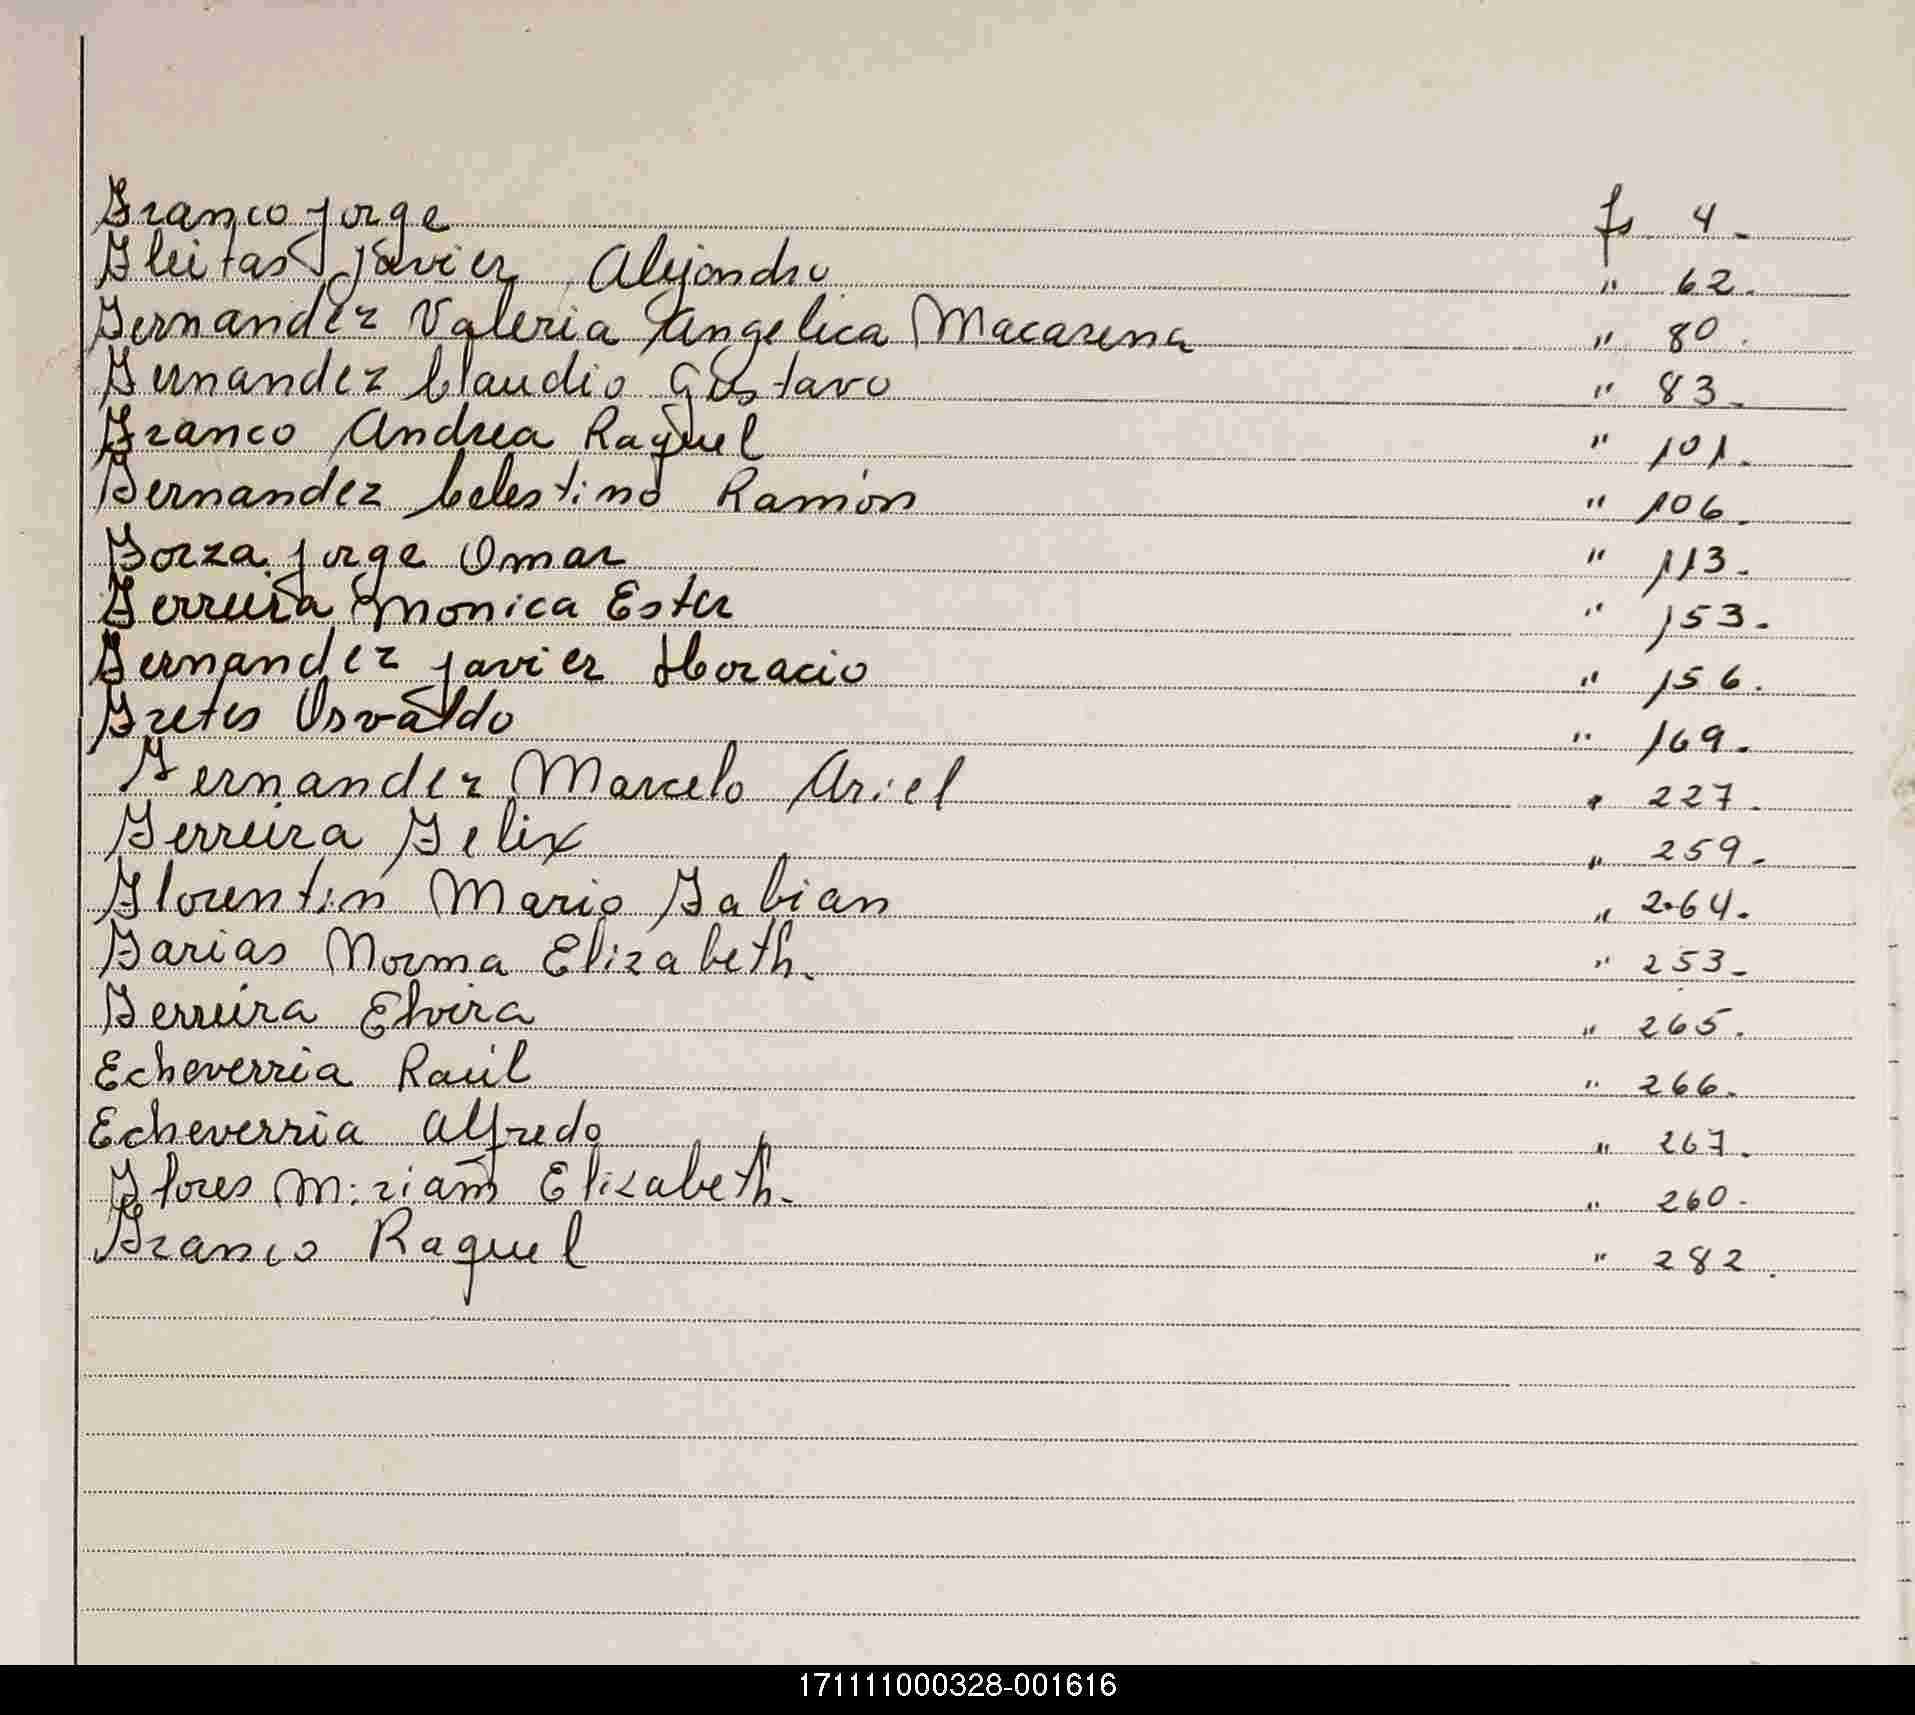 Franco Jorge fs 4.
Fleitas Javier Alejandro " 62.
Fernandez Valeria Angelica Macarena " 80.
Fernandez Claudio Gustavo " 83.
Franco Andrea Raquel " 101.
Fernandez Celestino Ramón " 106.
Forza Jorge Omar " 113.
Ferreira Monica Ester " 153.
Fernandez Javier Horacio " 156.
Fretes Osvaldo " 169.
Fernandez Marcelo Ariel " 227.
Ferreira Felix " 259.
Florentin Mario Fabian " 264.
Farias Norma Elizabeth. " 253.
Ferreira Elvira " 265.
Echeverria Raúl " 266.
Echeverria Alfredo " 267.
Flores Miriam Elizabeth. " 260.
Franco Raquel " 282.
171111000328-001616